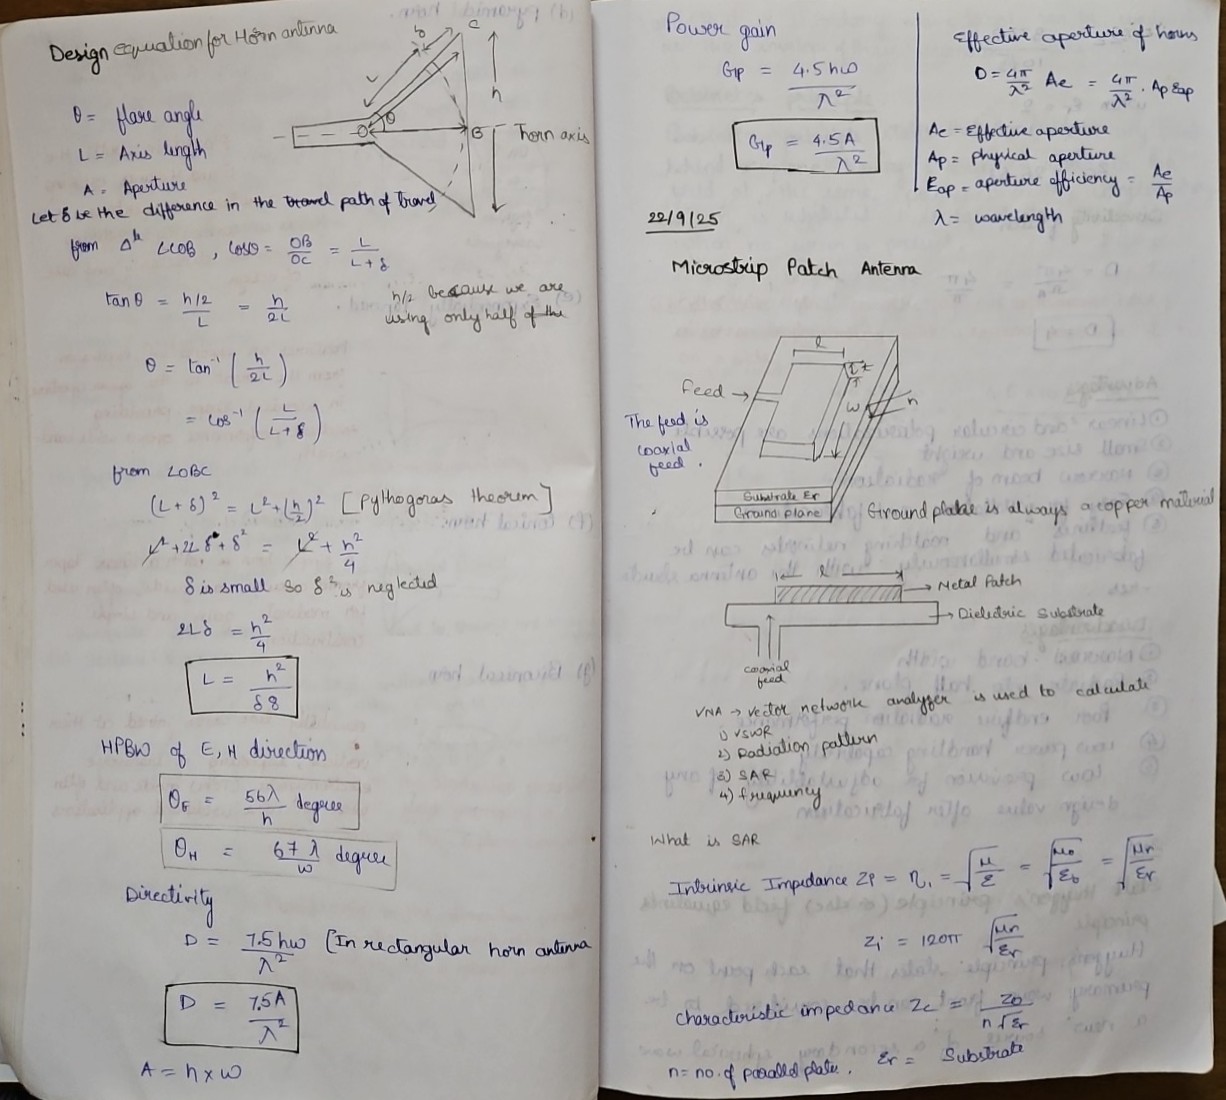 Design equation for Horn antenna
θ = flare angle
L = Axis length
A = Aperture
Let δ be the difference in the travel path of travel
from Δle LCOB, Cosθ = OB/OC = L/L+δ
tanθ = h/2/L = h/2L
h/2 because we are
using only half of the
θ = tan⁻¹(h/2L)
= cos⁻¹(L/L+δ)
from LOBC
(L+δ)² = L²+(h/2)² [pythogoras theorem]
L²+2Lδ+δ² = L²+h²/4
δ is small so δ² is neglected
2Lδ = h²/4
L = h²/δ8
HPBW of E, H direction
θE = 56λ/h degree
θH = 67λ/w degree
Directivity
D = 7.5hw/λ² [In rectangular horn antenna
D = 7.5A/λ²
A = h x w
L
δ
C
h
O
θ
B
horn axis
Power gain
Gp = 4.5hω/λ²
Gp = 4.5A/λ²
Effective aperture of horns
D = 4π/λ² Ae = 4π/λ² . Ap Eap
Ae = Effective aperture
Ap = physical aperture
Eap = aperture efficiency = Ae/Ap
λ = wavelength
22/9/25
Microstrip Patch Antenna
l
t
Feed
w
h
The feed is
coaxial
feed.
Substrate Er
Ground plane
Ground plate is always a copper material
l
Metal Patch
Dielectric Substrate
coaxial
feed
VNA → vector network analyzer is used to calculate
1) VSWR
2) Radiation pattern
3) SAR
4) frequency
What is SAR
Intrinsic Impedance Zi = η1 = √μ/ε = √μ0/ε0 = √μr/εr
Zi = 120π √μr/εr
characteristic impedance Zc = Z0/n√εr
n = no. of parallel plate. Er = Substrate